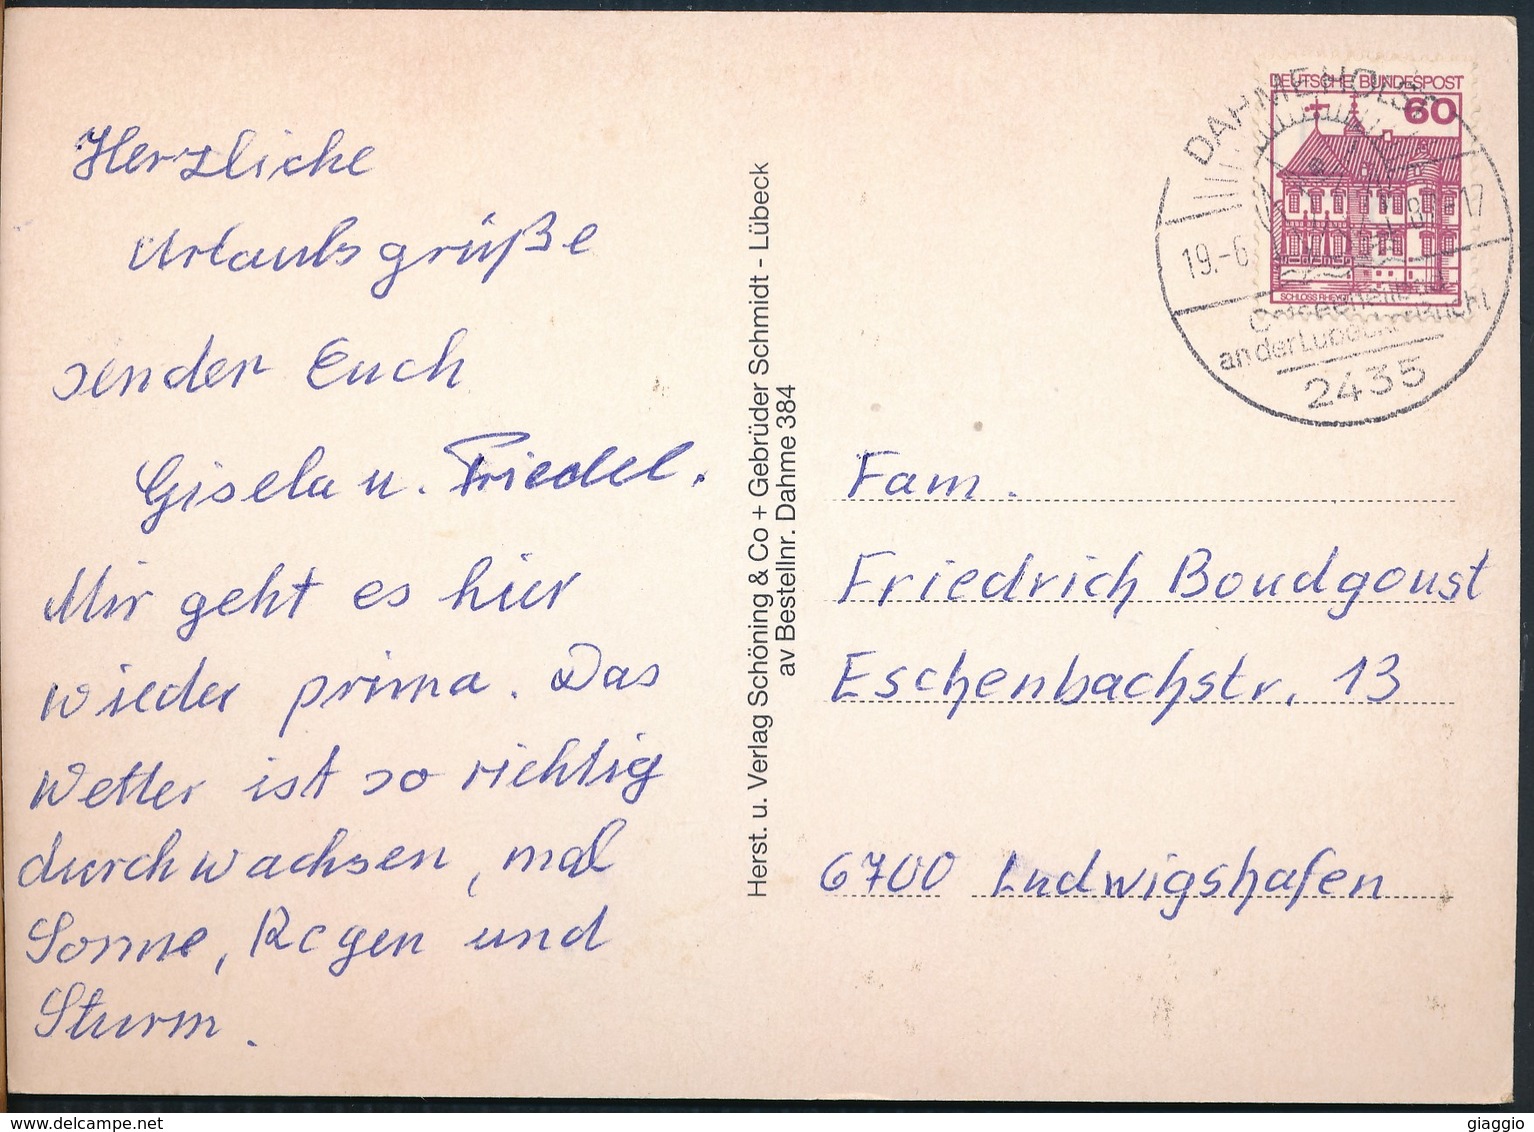 Herzliche
Urlaubsgrüße
sender Euch
Gisela u. Friedel.
Mir geht es hier
wieder prima. Das
Wetter ist so richtig
durchwachsen, mal
Sonne, Regen und
Sturm.
Herst. u. Verlag Schöning & Co + Gebrüder Schmidt - Lübeck
av Bestellnr. Dahme 384
DEUTSCHE BUNDESPOST
60
SCHLOSS RHEYDT
DAHME HOLST
19.-6. -17
an der Lübecker Bucht
2435
Fam.
Friedrich Boudgoust
Eschenbachstr. 13
6700 Ludwigshafen
delcampe.net
giaggio